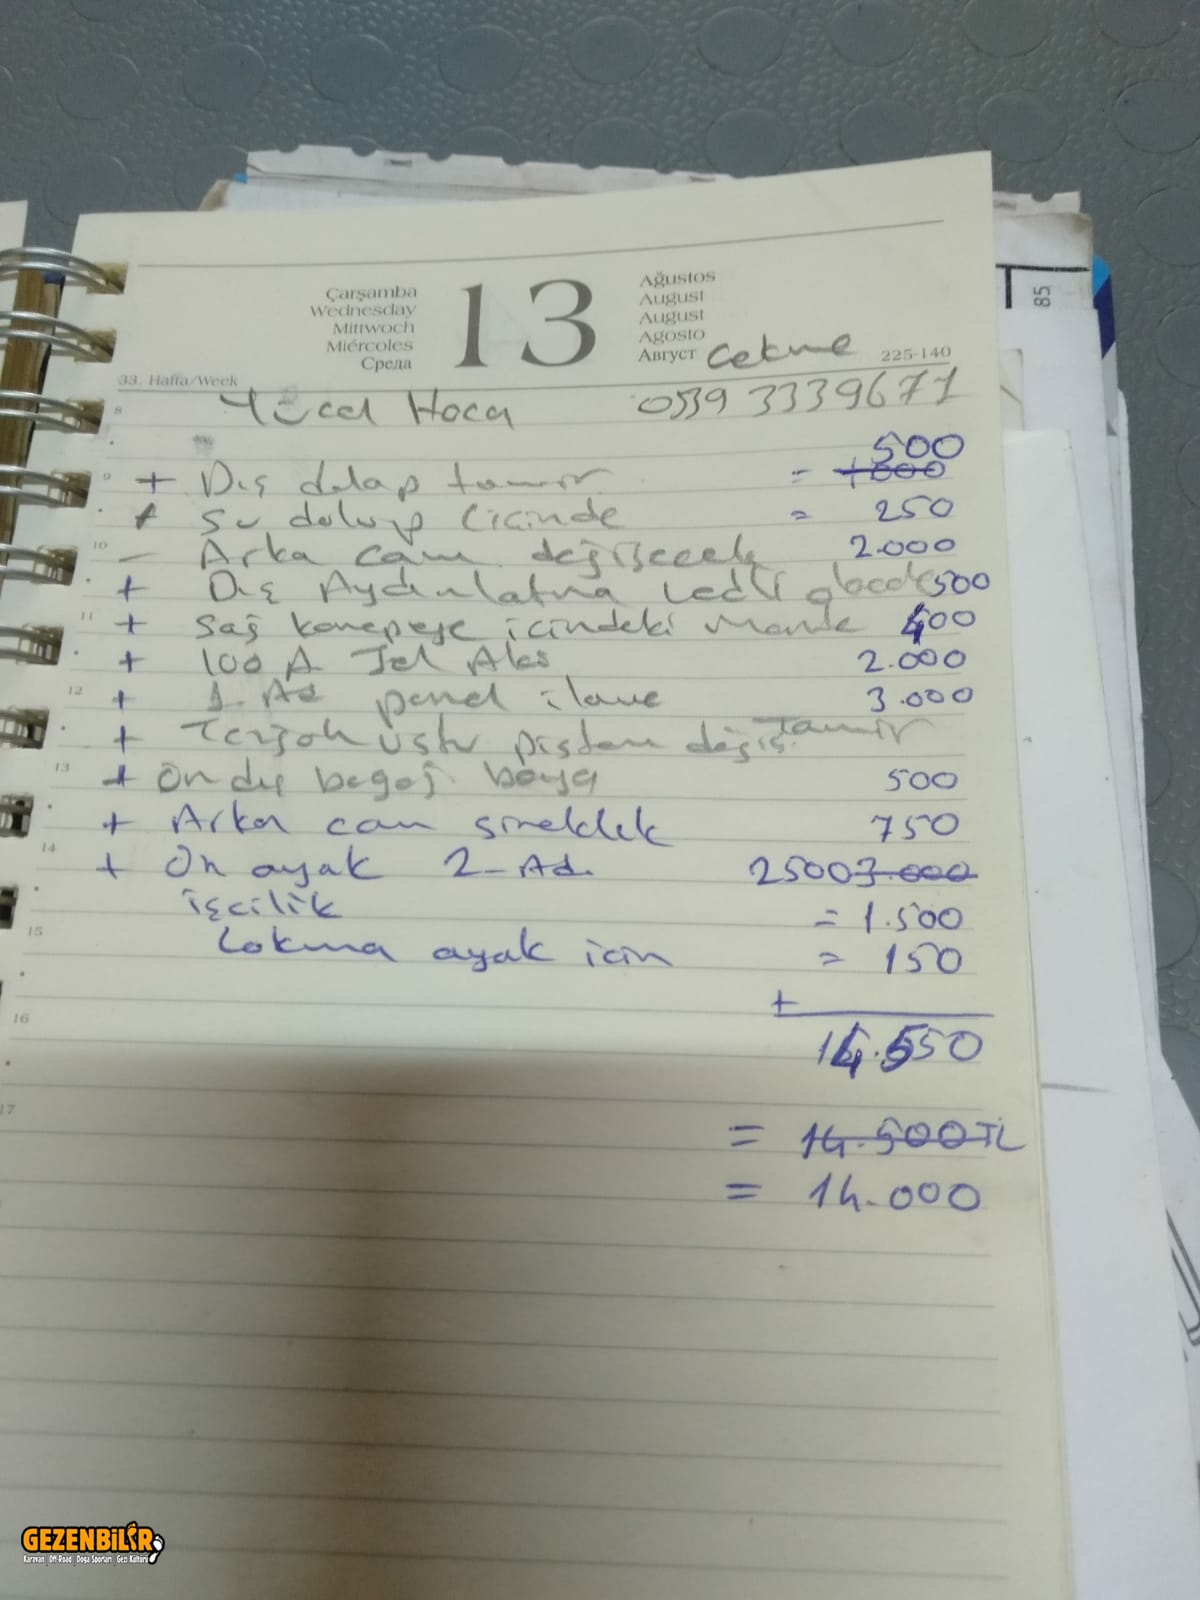 Çarşamba
Wednesday
Mittwoch
Miércoles
Среда
13
Ağustos
August
August
Agosto
Август
Cekme
33. Hafta/Week
225-140
8 Yücel Hoca 0539 3339671
500
9 + Dış dolap tamir = 1000
+ su dolap içinde = 250
10 - Arka cam değişecek 2.000
+ Dış Aydınlatma Ledli 500
11 + sağ kanepeye içindeki 400
+ 100 A Jel Akü 2.000
12 + 1 Ad panel ilave 3.000
+ Tezgah üstü piston değiş. Tamir
13 + ön dış bagaj boya 500
+ Arka cam sineklik 750
14 + Ön ayak 2-Ad. 2500 3.000
işcilik = 1.500
15 Lokma ayak için = 150
+
16 14.550
17 = 14.500 TL
= 14.000
85
GEZENBiLiR
Karavan Off-Road Doğa Sporları Gezi Kültürü